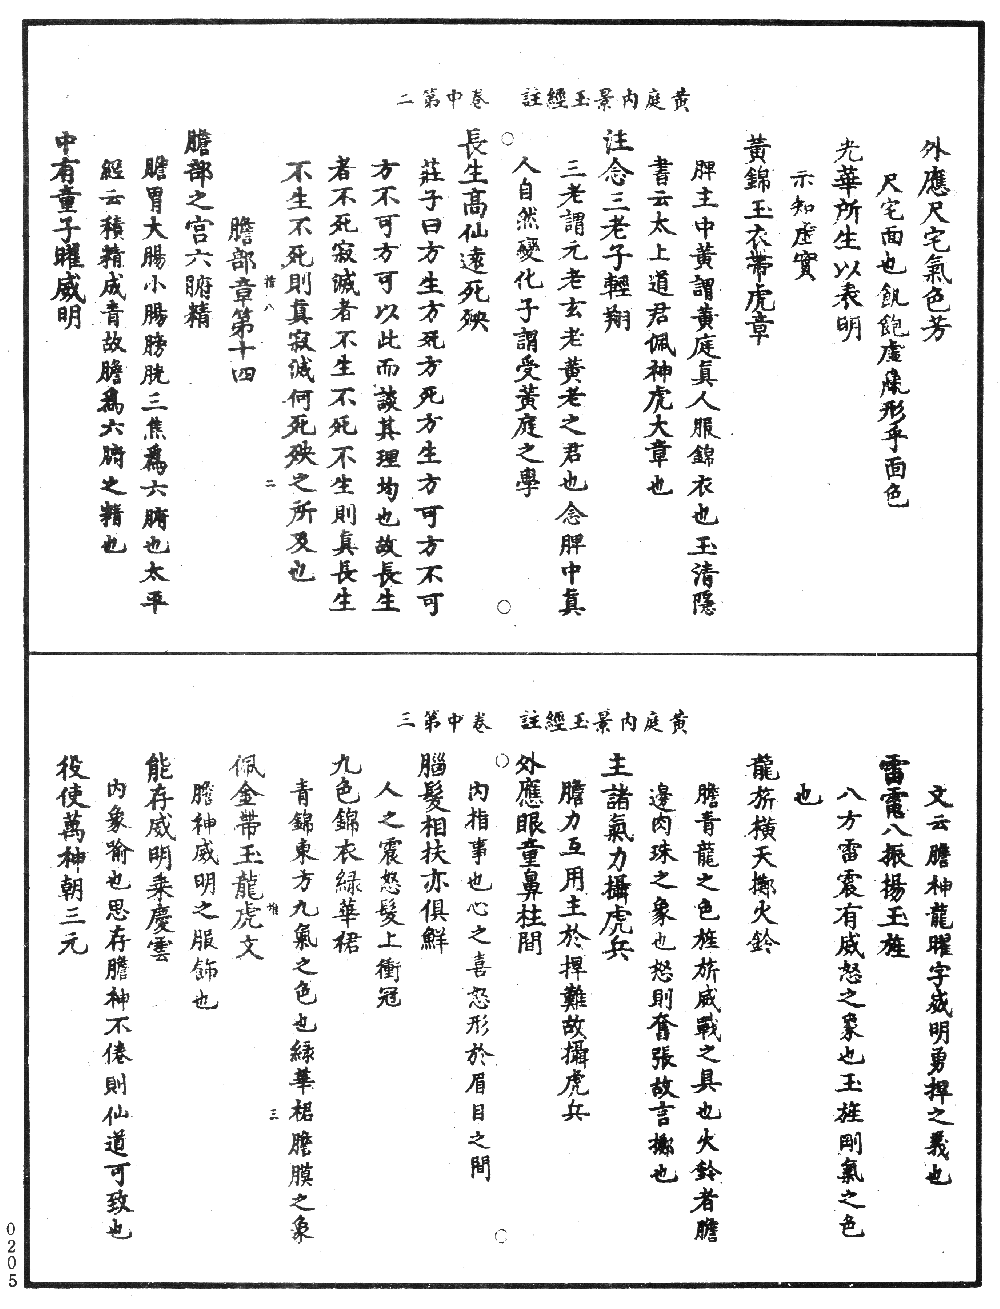 黃庭內景玉經註　卷中第二
外應尺宅氣色芳
尺宅面也飢飽虛羸形乎面色
光華所生以表明
示知虛實
黃錦玉衣帶虎章
脾主中黃謂黃庭真人服錦衣也玉清隱
書云太上道君佩神虎大章也
注念三老子輕翔
三老謂元老玄老黃老之君也念脾中真
人自然變化子謂受黃庭之學
長生高仙遠死殃
莊子曰方生方死方死方生方可方不可
方不可方可以此而談其理均也故長生
者不死寂滅者不生不死不生則真長生
不生不死則真寂滅何死殃之所及也
膽部章第十四
膽部之宮六腑精
膽胃大腸小腸膀胱三焦爲六腑也太平
經云積精成青故膽爲六腑之精也
中有童子曜威明
二
黃庭內景玉經註　卷中第三
文云膽神龍曜字威明勇捍之義也
雷電八振揚玉旌
八方雷震有威怒之象也玉旌剛氣之色
也
龍旂橫天擲火鈴
膽青龍之色旌旂威戰之具也火鈴者膽
邊肉珠之象也怒則奮張故言擲也
主諸氣力攝虎兵
膽力互用主於捍難故攝虎兵
外應眼童鼻柱間
內指事也心之喜怒形於眉目之間
腦髮相扶亦俱鮮
人之震怒髮上衝冠
九色錦衣綠華裙
青錦東方九氣之色也綠華裙膽膜之象
佩金帶玉龍虎文
膽神威明之服飾也
能存威明乘慶雲
內象喻也思存膽神不倦則仙道可致也
役使萬神朝三元
三
0205